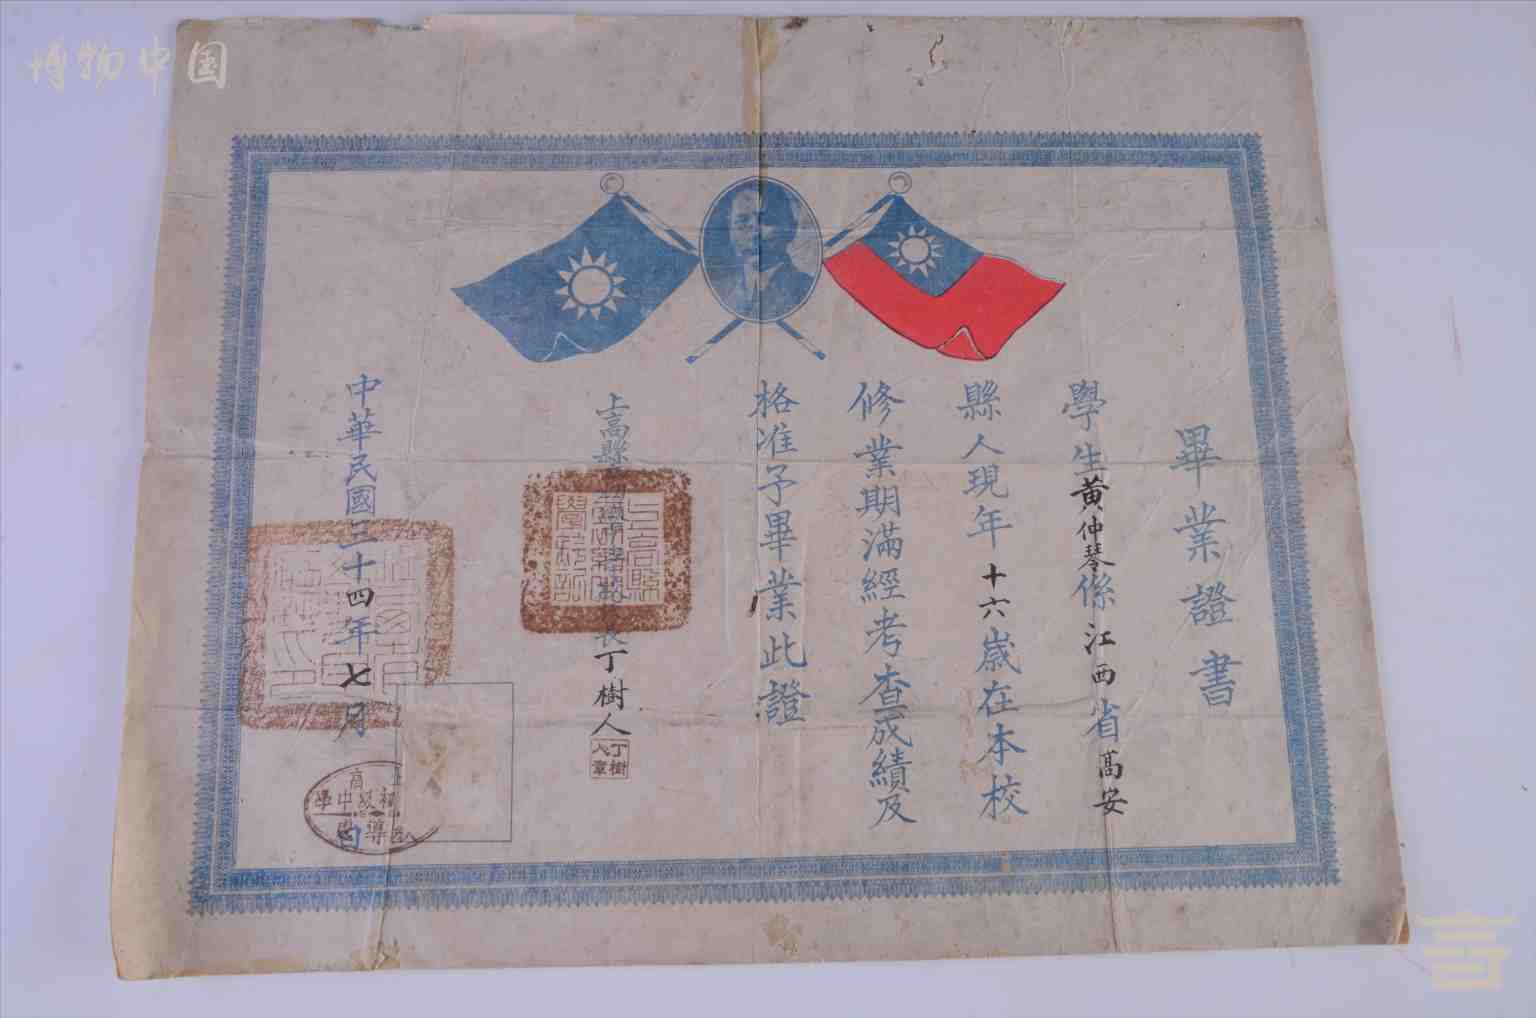 博物中国
畢業證書
學生黃仲琴係江西省高安
縣人現年十六歲在本校
修業期滿經考查成績及
格准予畢業此證
上高縣
長丁樹人
丁樹人章
中華民國三十四年七月
日